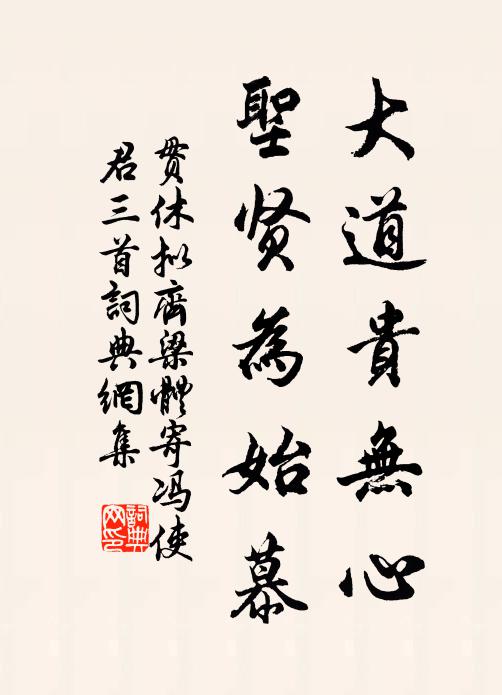 大道貴無心
聖贤為始慕
貫休拟齊梁體寄冯使
君三首詞典網集
詞典
网印